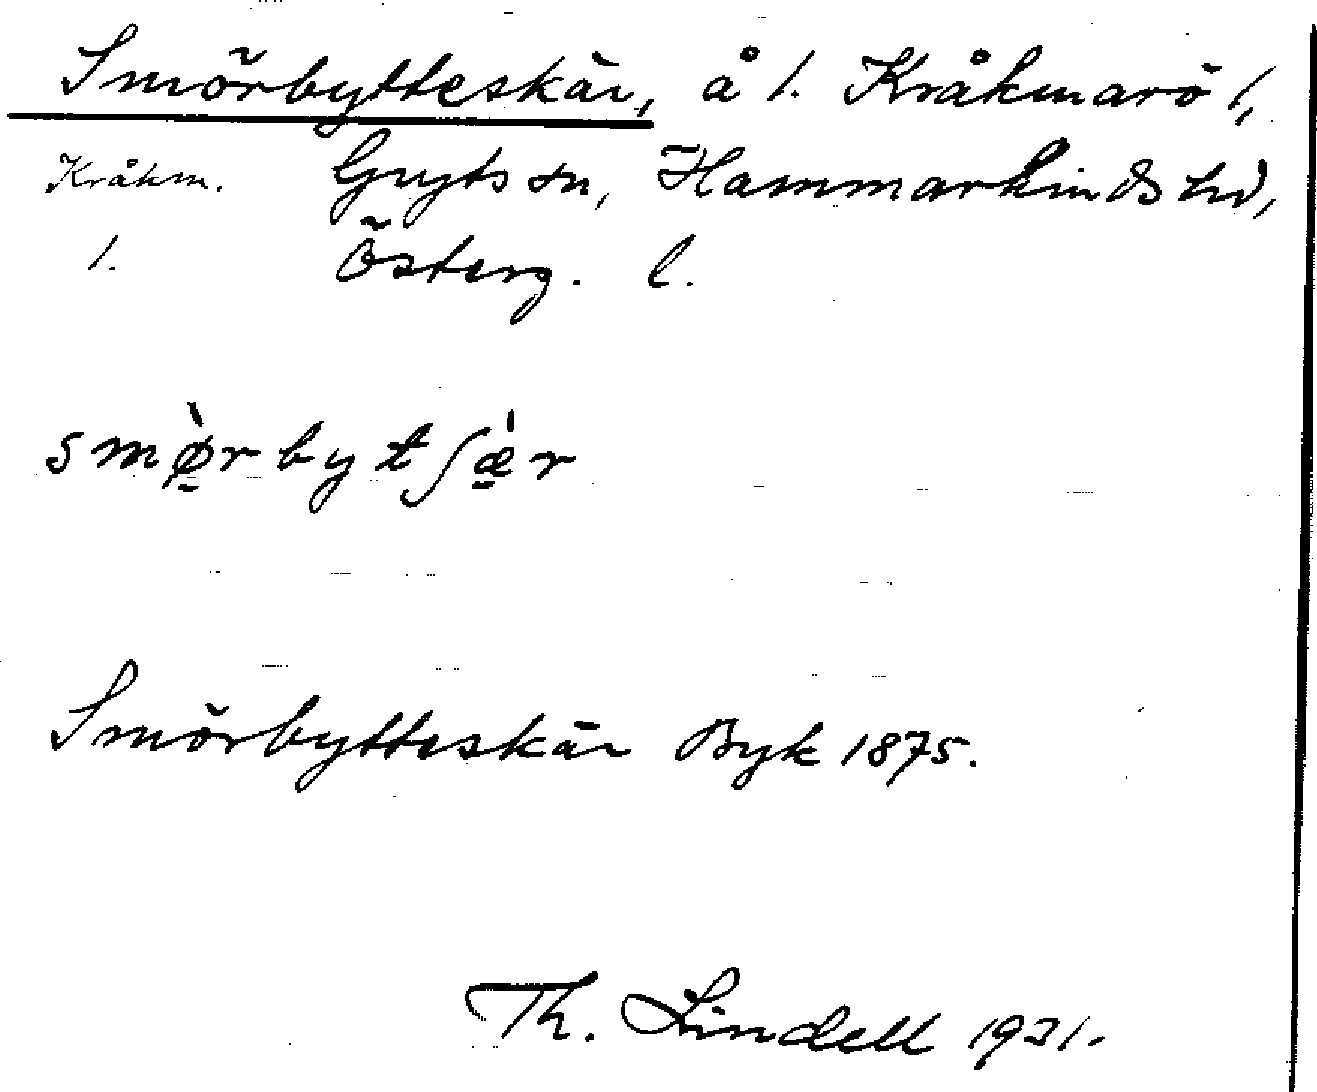 Smörbytteskär, å 1. Kråkmarö 1,
Kråkm. Gryts sn, Hammarkinds hd,
1. Österg. l.
smø̀rbytʃæ̀r
Smörbytteskär Byk 1875.
Th. Lindell 1931.